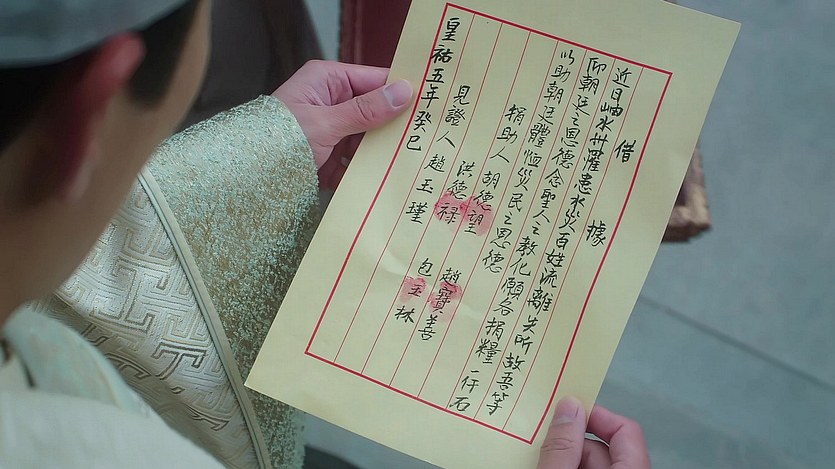 借據
近日岫水州罹患水災百姓流離失所故吾等
仰朝廷之恩德念聖人之教化願各捐糧一仟石
以助朝廷體恤災民之恩德
捐助人 胡德望 趙寶善
洪德禄 包玉林
見證人 趙玉瑾
皇祐五年癸巳